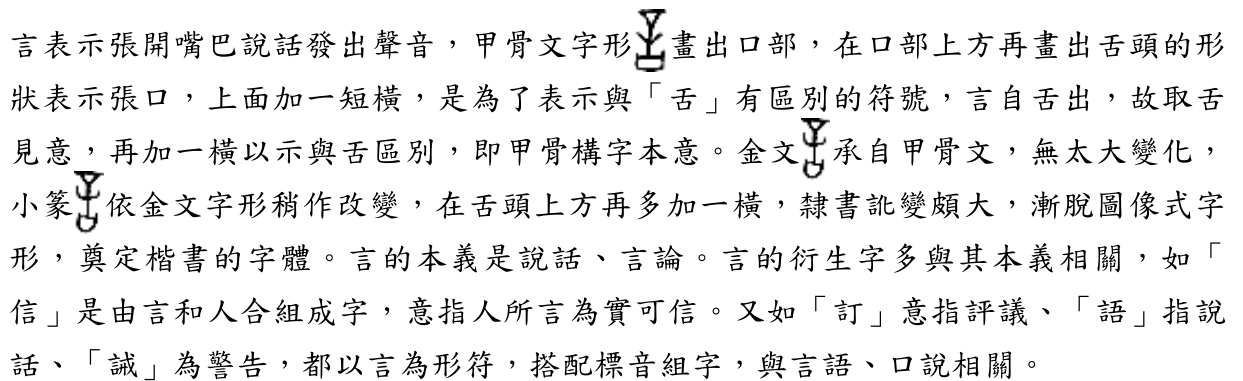 言表示張開嘴巴說話發出聲音，甲骨文字形畫出口部，在口部上方再畫出舌頭的形
狀表示張口，上面加一短橫，是為了表示與「舌」有區別的符號，言自舌出，故取舌
見意，再加一橫以示與舌區別，即甲骨構字本意。金文承自甲骨文，無太大變化，
小篆依金文字形稍作改變，在舌頭上方再多加一橫，隸書訛變頗大，漸脫圖像式字
形，奠定楷書的字體。言的本義是說話、言論。言的衍生字多與其本義相關，如「
信」是由言和人合組成字，意指人所言為實可信。又如「訂」意指評議、「語」指說
話、「誡」為警告，都以言為形符，搭配標音組字，與言語、口說相關。